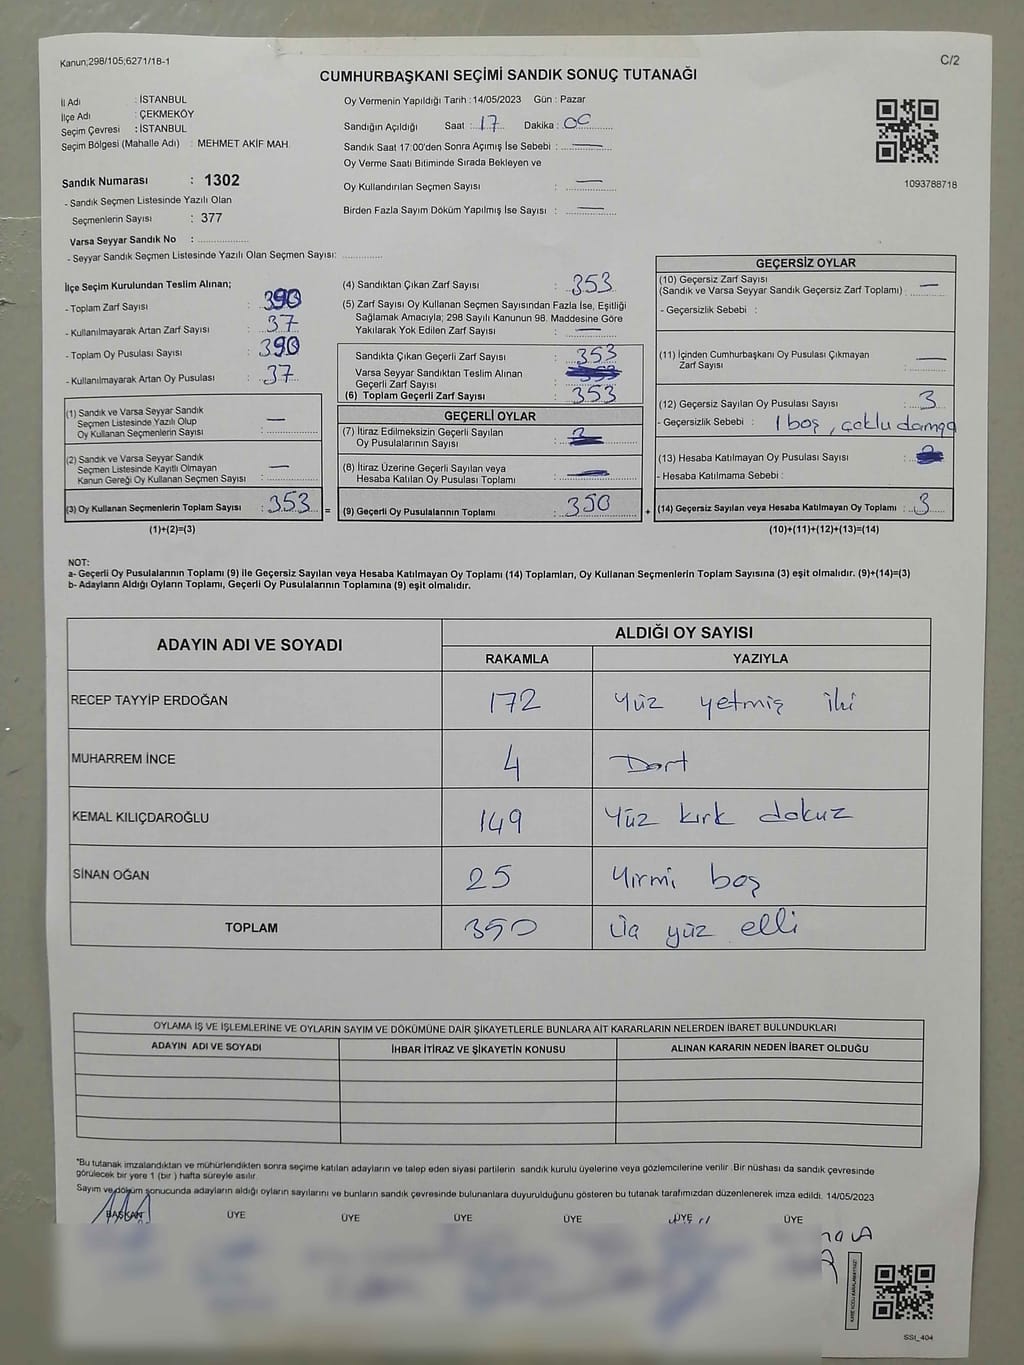 Kanun;298/105;6271/18-1
C/2
CUMHURBAŞKANI SEÇİMİ SANDIK SONUÇ TUTANAĞI
İl Adı : İSTANBUL
İlçe Adı : ÇEKMEKÖY
Seçim Çevresi : İSTANBUL
Seçim Bölgesi (Mahalle Adı) : MEHMET AKİF MAH.
Sandık Numarası : 1302
- Sandık Seçmen Listesinde Yazılı Olan
Seçmenlerin Sayısı : 377
Varsa Seyyar Sandık No :
- Seyyar Sandık Seçmen Listesinde Yazılı Olan Seçmen Sayısı:
Oy Vermenin Yapıldığı Tarih : 14/05/2023 Gün : Pazar
Sandığın Açıldığı Saat : 17 Dakika : 00
Sandık Saat 17:00'den Sonra Açımış İse Sebebi : —
Oy Verme Saati Bitiminde Sırada Bekleyen ve
Oy Kullandırılan Seçmen Sayısı : —
Birden Fazla Sayım Döküm Yapılmış İse Sayısı : —
1093788718
İlçe Seçim Kurulundan Teslim Alınan;
- Toplam Zarf Sayısı : 390
- Kullanılmayarak Artan Zarf Sayısı : 37
- Toplam Oy Pusulası Sayısı : 390
- Kullanılmayarak Artan Oy Pusulası : 37
(1) Sandık ve Varsa Seyyar Sandık
Seçmen Listesinde Yazılı Olup
Oy Kullanan Seçmenlerin Sayısı : —
(2) Sandık ve Varsa Seyyar Sandık
Seçmen Listesinde Kayıtlı Olmayan
Kanun Gereği Oy Kullanan Seçmen Sayısı : —
(3) Oy Kullanan Seçmenlerin Toplam Sayısı : 353 =
(1)+(2)=(3)
(4) Sandıktan Çıkan Zarf Sayısı : 353
(5) Zarf Sayısı Oy Kullanan Seçmen Sayısından Fazla İse, Eşitliği
Sağlamak Amacıyla; 298 Sayılı Kanunun 98. Maddesine Göre
Yakılarak Yok Edilen Zarf Sayısı : —
Sandıkta Çıkan Geçerli Zarf Sayısı : 353
Varsa Seyyar Sandıktan Teslim Alınan
Geçerli Zarf Sayısı :
(6) Toplam Geçerli Zarf Sayısı : 353
GEÇERLİ OYLAR
(7) İtiraz Edilmeksizin Geçerli Sayılan
Oy Pusulalarının Sayısı :
(8) İtiraz Üzerine Geçerli Sayılan veya
Hesaba Katılan Oy Pusulası Toplamı :
(9) Geçerli Oy Pusulalarının Toplamı : 350 +
GEÇERSİZ OYLAR
(10) Geçersiz Zarf Sayısı
(Sandık ve Varsa Seyyar Sandık Geçersiz Zarf Toplamı) : —
- Geçersizlik Sebebi :
(11) İçinden Cumhurbaşkanı Oy Pusulası Çıkmayan
Zarf Sayısı : —
(12) Geçersiz Sayılan Oy Pusulası Sayısı : 3
- Geçersizlik Sebebi : 1 boş, çoklu damga
(13) Hesaba Katılmayan Oy Pusulası Sayısı :
- Hesaba Katılmama Sebebi :
(14) Geçersiz Sayılan veya Hesaba Katılmayan Oy Toplamı : 3
(10)+(11)+(12)+(13)=(14)
NOT:
a- Geçerli Oy Pusulalarının Toplamı (9) ile Geçersiz Sayılan veya Hesaba Katılmayan Oy Toplamı (14) Toplamları, Oy Kullanan Seçmenlerin Toplam Sayısına (3) eşit olmalıdır. (9)+(14)=(3)
b- Adayların Aldığı Oyların Toplamı, Geçerli Oy Pusulalarının Toplamına (9) eşit olmalıdır.
ADAYIN ADI VE SOYADI
ALDIĞI OY SAYISI
RAKAMLA YAZIYLA
RECEP TAYYİP ERDOĞAN 172 Yüz yetmiş iki
MUHARREM İNCE 4 Dort
KEMAL KILIÇDAROĞLU 149 Yüz kırk dokuz
SİNAN OĞAN 25 Yirmi beş
TOPLAM 350 Üç yüz elli
OYLAMA İŞ VE İŞLEMLERİNE VE OYLARIN SAYIM VE DÖKÜMÜNE DAİR ŞİKAYETLERLE BUNLARA AİT KARARLARIN NELERDEN İBARET BULUNDUKLARI
ADAYIN ADI VE SOYADI İHBAR İTİRAZ VE ŞİKAYETİN KONUSU ALINAN KARARIN NEDEN İBARET OLDUĞU
*Bu tutanak imzalandıktan ve mühürlendikten sonra seçime katılan adayların ve talep eden siyasi partilerin sandık kurulu üyelerine veya gözlemcilerine verilir .Bir nüshası da sandık çevresinde
görülecek bir yere 1 (bir ) hafta süreyle asılır.
Sayım ve döküm sonucunda adayların aldığı oyların sayılarını ve bunların sandık çevresinde bulunanlara duyurulduğunu gösteren bu tutanak tarafımızdan düzenlenerek imza edildi. 14/05/2023
BAŞKAN ÜYE ÜYE ÜYE ÜYE ÜYE ÜYE
SSI_404